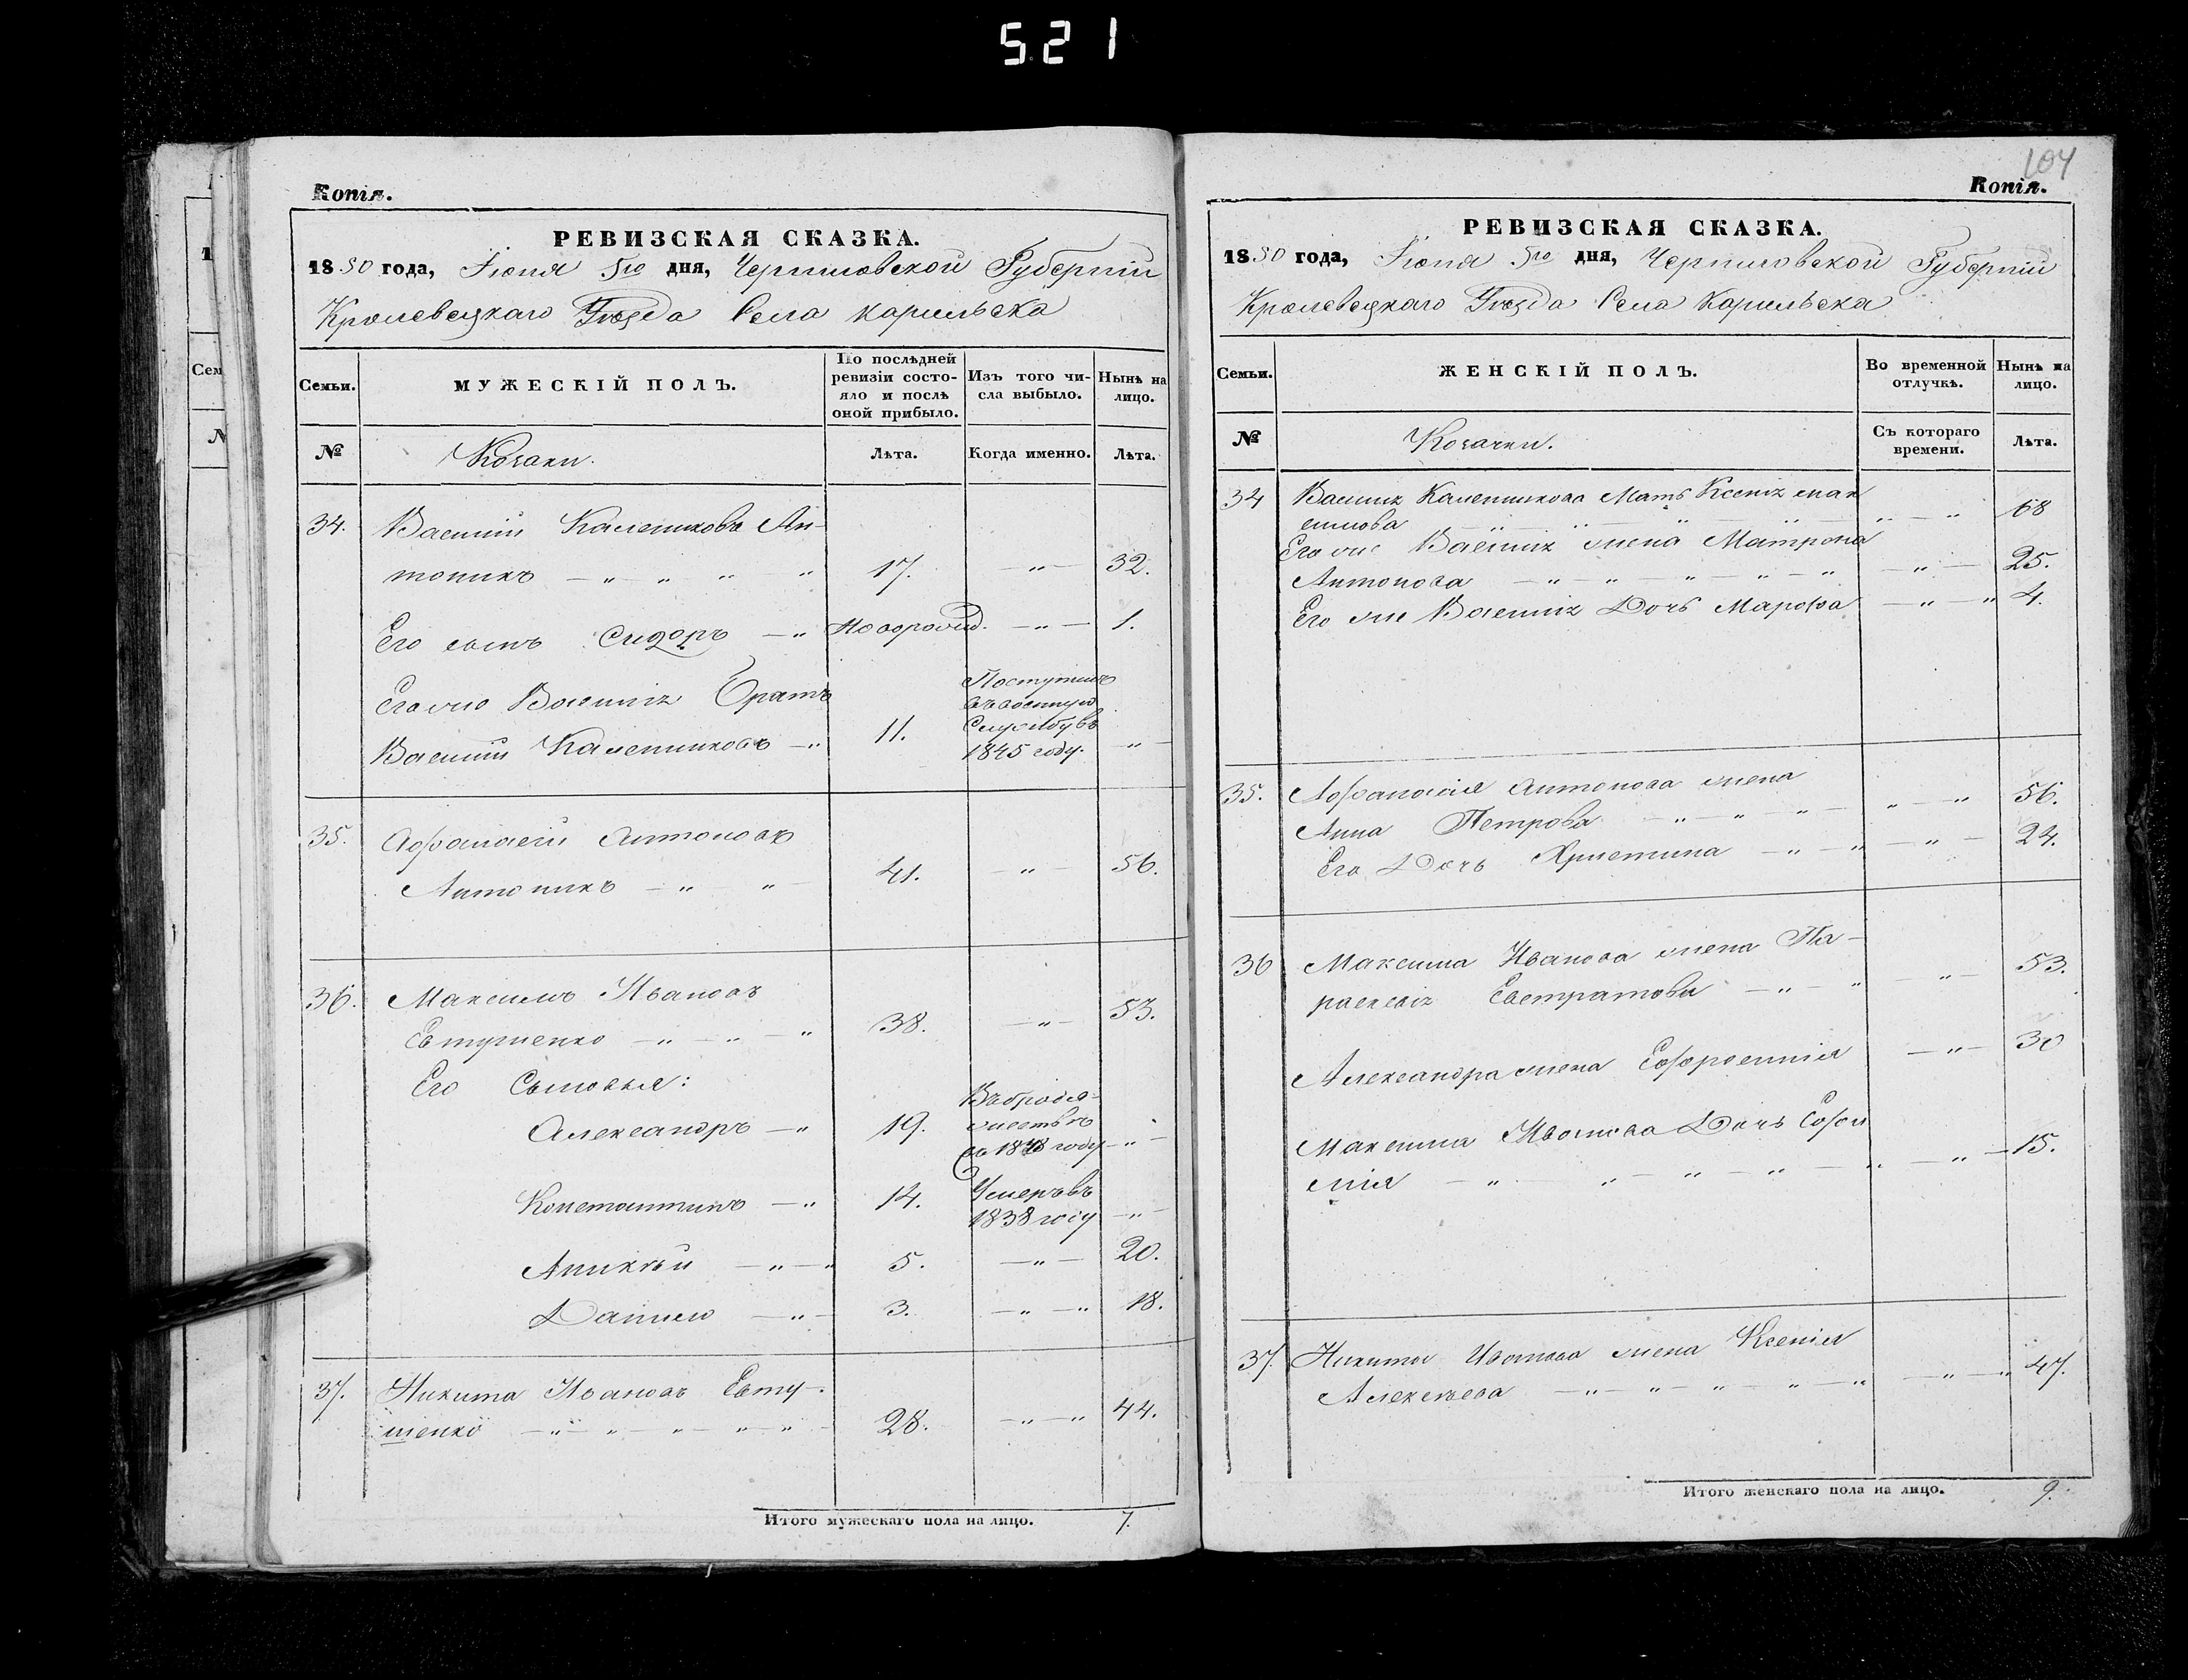 521
Копія.
РЕВИЗСКАЯ СКАЗКА.
1850 года, Іюня 5го дня, Черниговской Губерніи
Кролевецкаго Уѣзда Села Карильска
Семьи.
МУЖЕСКІЙ ПОЛЪ.
По послѣдней ревизіи состояло и послѣ оной прибыло.
Изъ того числа выбыло.
Нынѣ на лицо.
№
Козаки.
Лѣта.
Когда именно.
Лѣта.
34. Василій Калениковъ Ан-
тоникъ — " — " — " — " 17. — " — 32.
Его сынъ Сидоръ — " Новорожд. — " — 1.
Его же Василія Братъ
Василій Калениковъ — " 11.
Поступилъ
въ военную
Службу въ
1845 году. — " —
35. Афанасій Антоновъ
Антоникъ — " — " — 41. — " — 56.
36. Максимъ Ивановъ
Евтушенко — " — " — " 38. — " — 53.
Его Сыновья:
Александръ — " 19.
Въ бродя-
жествѣ
году — " —
Константинъ — " 14.
Умеръ въ
1838 году — " —
Аникѣй — " — " 5. — " — 20.
Данило — " — 3. — " — " 18.
37. Никита Ивановъ Евту-
шенко — " — " — " — " — " — 28. — " — " 44.
Итого мужескаго пола на лицо. 7.
104
Копія.
РЕВИЗСКАЯ СКАЗКА.
1850 года, Іюня 5го дня, Черниговской Губерніи
Кролевецкаго Уѣзда Села Карильска
Семьи.
ЖЕНСКІЙ ПОЛЪ.
Во временной отлучкѣ.
Нынѣ на лицо.
№
Козачки.
Съ котораго времени.
Лѣта.
34 Василія Каленикова Мать Ксенія мак
симова — " — " — " — " — " — " 68
Его же Василія жена Матрона
Антонова — " — " — " — " — " — " — 25.
Его же Василія Дочь Марфа — " — " 4.
35. Афанасія Антонова жена
Анна Петрова — " — " — " — " — " 56.
Его Дочь Христина — " — " — " — 24.
36 Максима Иванова жена Па-
раскевія Евстратова — " — " — " — 53.
Александра жена Евфросинія — " — 30
Максима Иванова Дочь Софи
нія — " — " — " — " — " — " — 15.
37. Никиты Иванова жена Ксенія
Алексѣева — " — " — " — " — " — " — " 47.
Итого женскаго пола на лицо. 9.